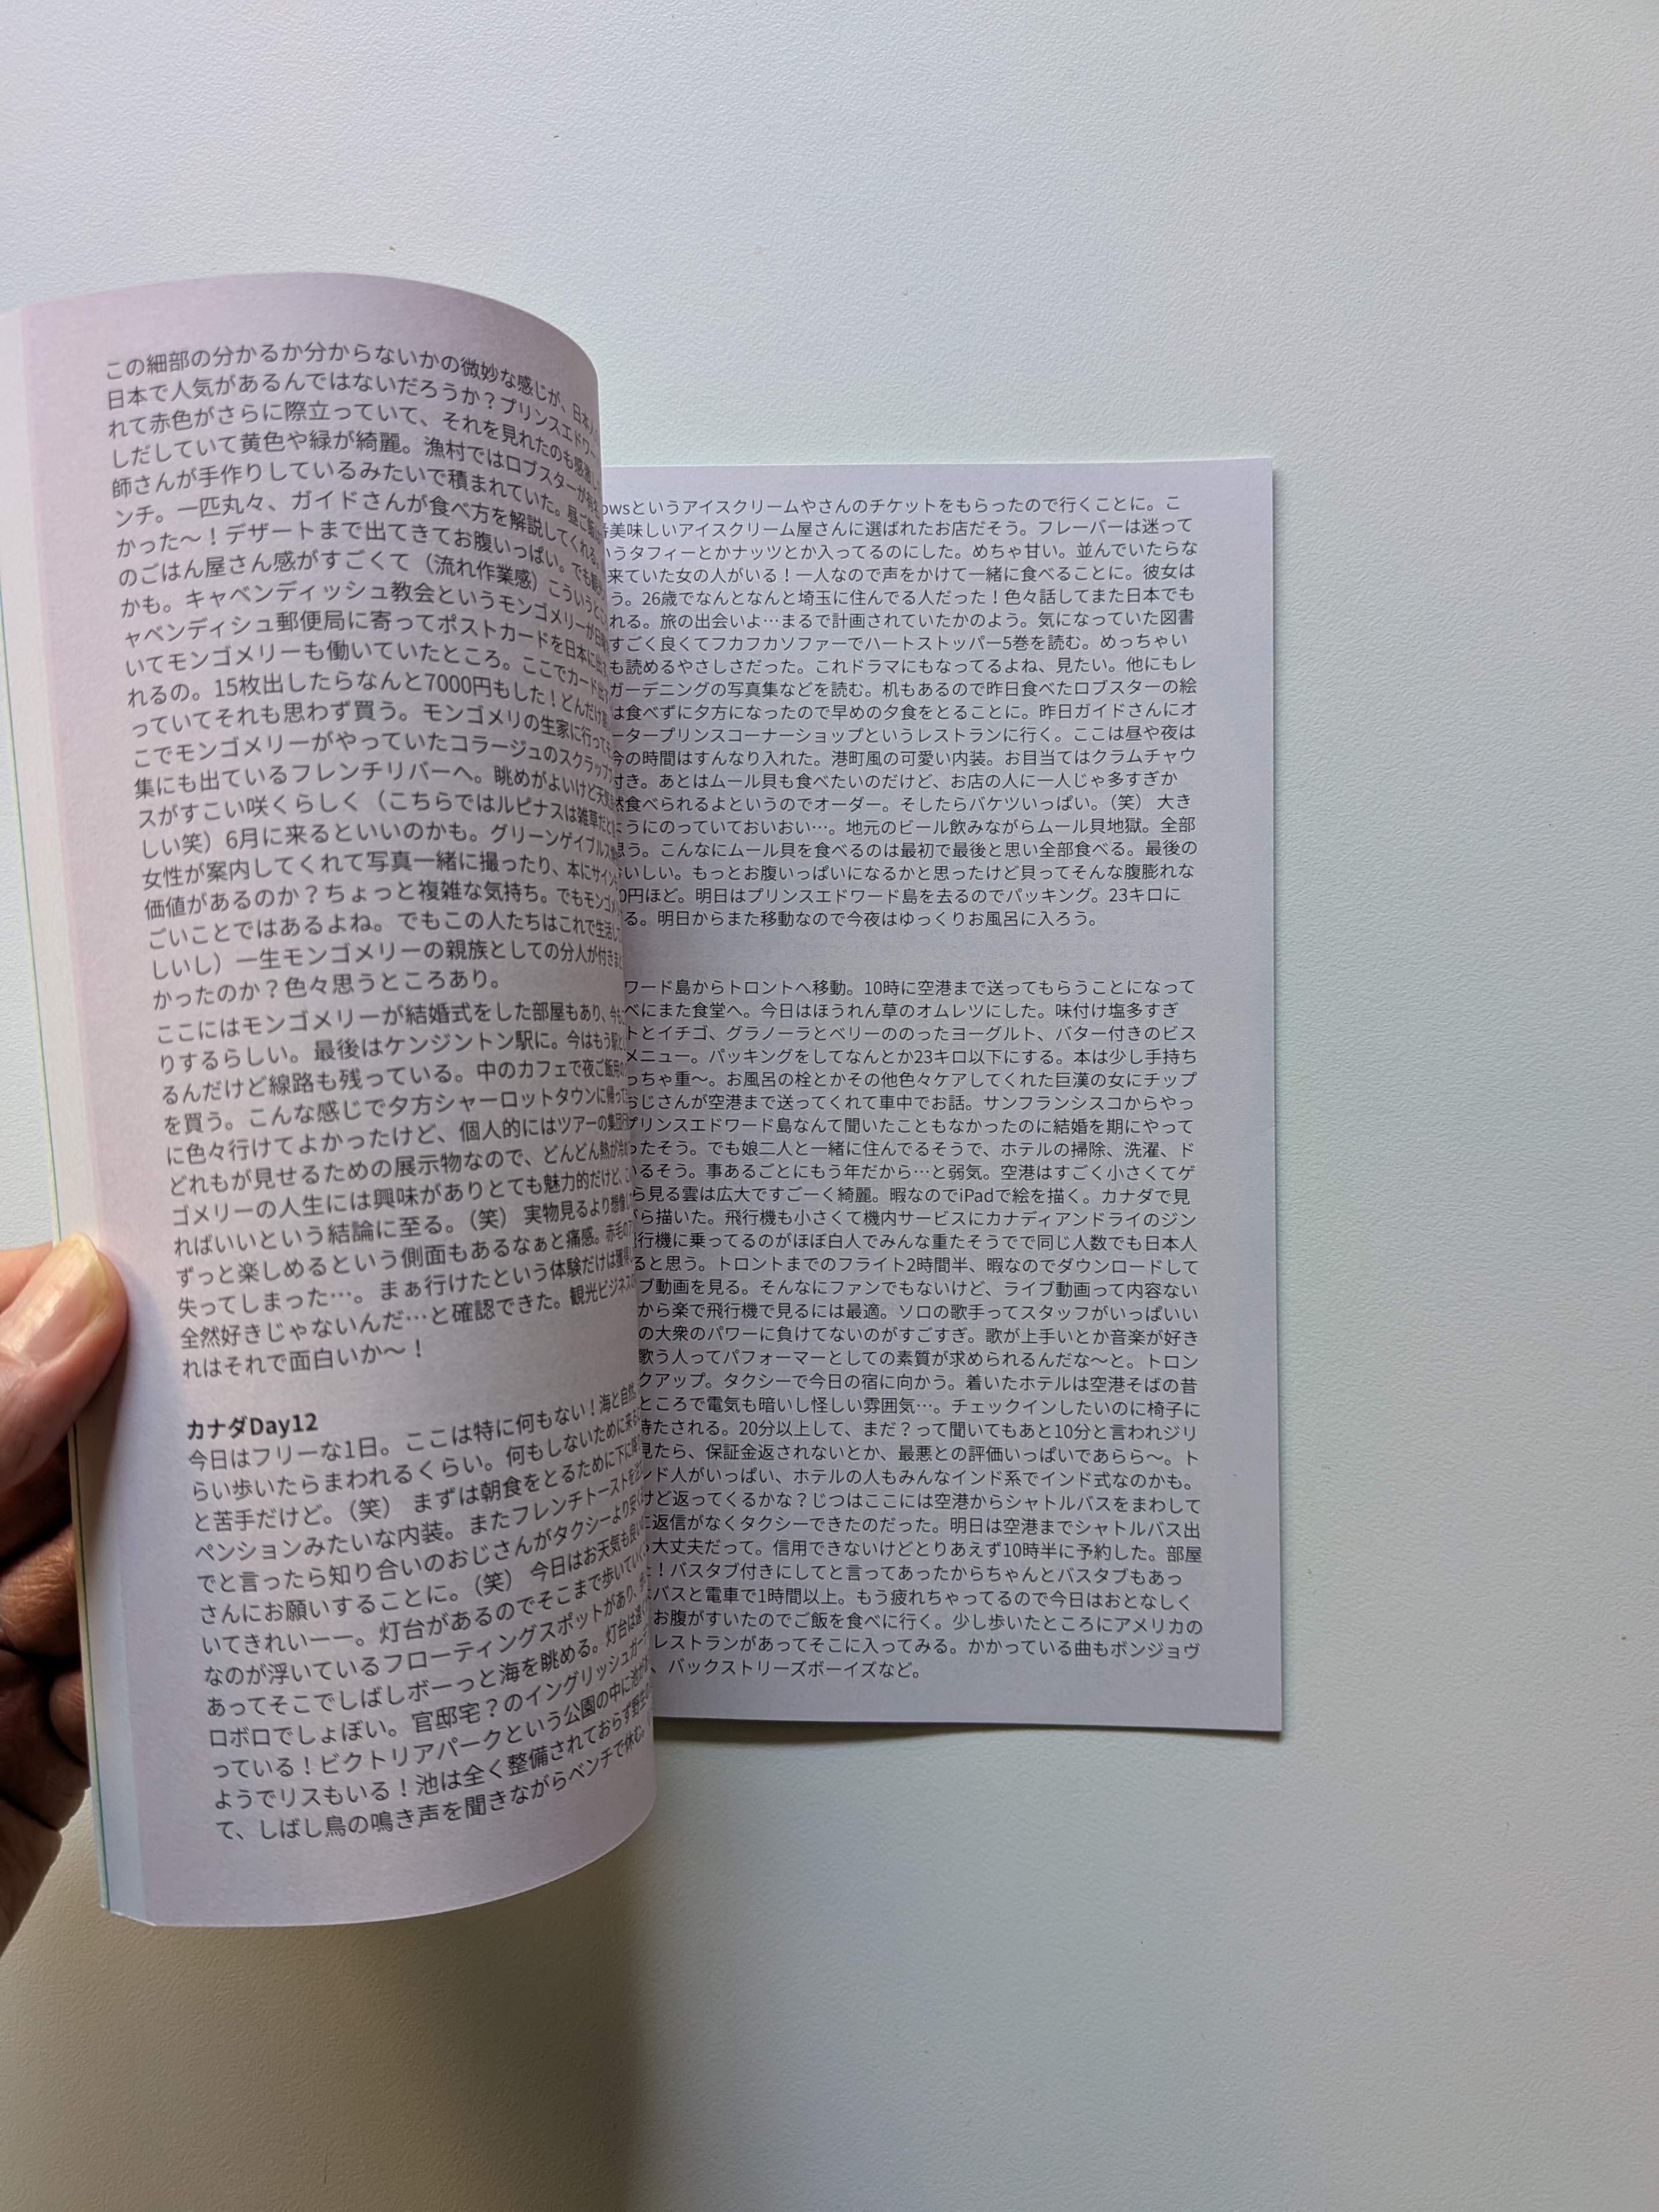 この細部の分かるか分からないかの微妙な感じが、日本人
日本で人気があるんではないだろうか？プリンスエドワー
れて赤色がさらに際立っていて、それを見れたのも感激
しだしていて黄色や緑が綺麗。漁村ではロブスターが有名
師さんが手作りしているみたいで積まれていた。昼ご飯
ンチ。一匹丸々、ガイドさんが食べ方を解説してくれる。
かった〜！デザートまで出てきてお腹いっぱい。でも
のごはん屋さん感がすごくて（流れ作業感）こういうと
かも。キャベンディッシュ教会というモンゴメリーが日曜
ャベンディシュ郵便局に寄ってポストカードを日本に出す
いてモンゴメリーも働いていたところ。ここでカード出す
れるの。15枚出したらなんと7000円もした！どんだけ
っていてそれも思わず買う。モンゴメリの生家に行っても
こでモンゴメリーがやっていたコラージュのスクラップ
集にも出ているフレンチリバーへ。眺めがよいけど天気
スがすこい咲くらしく（こちらではルピナスは雑草だと
しい笑）6月に来るといいのかも。グリーンゲイブルス
女性が案内してくれて写真一緒に撮ったり、本にサイン
価値があるのか？ちょっと複雑な気持ち。でもモンゴメ
ごいことではあるよね。でもこの人たちはこれで生活し
しいし）一生モンゴメリーの親族としての分人が付きま
かったのか？色々思うところあり。
ここにはモンゴメリーが結婚式をした部屋もあり、今も
りするらしい。最後はケンジントン駅に。今はもう駅と
るんだけど線路も残っている。中のカフェで夜ご飯用の
を買う。こんな感じで夕方シャーロットタウンに帰って
に色々行けてよかったけど、個人的にはツアーの集団行
どれもが見せるための展示物なので、どんどん熱が冷め
ゴメリーの人生には興味がありとても魅力的だけど、こ
ればいいという結論に至る。（笑） 実物見るより想像
ずっと楽しめるという側面もあるなぁと痛感。赤毛の
失ってしまった…。まぁ行けたという体験だけは獲得
全然好きじゃないんだ…と確認できた。観光ビジネス
れはそれで面白いか〜！
カナダDay12
今日はフリーな1日。ここは特に何もない！海と自然
らい歩いたらまわれるくらい。何もしないために来る
と苦手だけど。（笑） まずは朝食をとるために下に降
ペンションみたいな内装。またフレンチトーストを
でと言ったら知り合いのおじさんがタクシーより安く
さんにお願いすることに。（笑） 今日はお天気も良い
いてきれいーー。灯台があるのでそこまで歩いていく
なのが浮いているフローティングスポットがあり、
あってそこでしばしボーっと海を眺める。灯台は遠く
ロボロでしょぼい。官邸宅？のイングリッシュガーデ
っている！ビクトリアパークという公園の中に池が
ようでリスもいる！池は全く整備されておらず野生の
て、しばし鳥の鳴き声を聞きながらベンチで休む。
owsというアイスクリームやさんのチケットをもらったので行くことに。こ
美味しいアイスクリーム屋さんに選ばれたお店だそう。フレーバーは迷って
いうタフィーとかナッツとか入ってるのにした。めちゃ甘い。並んでいたらな
来ていた女の人がいる！一人なので声をかけて一緒に食べることに。彼女は
う。26歳でなんとなんと埼玉に住んでる人だった！色々話してまた日本でも
れる。旅の出会いよ…まるで計画されていたかのよう。気になっていた図書
すごく良くてフカフカソファーでハートストッパー5巻を読む。めっちゃい
も読めるやさしさだった。これドラマにもなってるよね、見たい。他にもレ
ガーデニングの写真集などを読む。机もあるので昨日食べたロブスターの絵
は食べずに夕方になったので早めの夕食をとることに。昨日ガイドさんにオ
ータープリンスコーナーショップというレストランに行く。ここは昼や夜は
今の時間はすんなり入れた。港町風の可愛い内装。お目当てはクラムチャウ
付き。あとはムール貝も食べたいのだけど、お店の人に一人じゃ多すぎか
然食べられるよというのでオーダー。そしたらバケツいっぱい。（笑） 大き
ようにのっていておいおい…。地元のビール飲みながらムール貝地獄。全部
思う。こんなにムール貝を食べるのは最初で最後と思い全部食べる。最後の
おいしい。もっとお腹いっぱいになるかと思ったけど貝ってそんな腹膨れな
0円ほど。明日はプリンスエドワード島を去るのでパッキング。23キロに
る。明日からまた移動なので今夜はゆっくりお風呂に入ろう。
ワード島からトロントへ移動。10時に空港まで送ってもらうことになって
べにまた食堂へ。今日はほうれん草のオムレツにした。味付け塩多すぎ
トとイチゴ、グラノーラとベリーののったヨーグルト、バター付きのビス
メニュー。パッキングをしてなんとか23キロ以下にする。本は少し手持ち
っちゃ重〜。お風呂の栓とかその他色々ケアしてくれた巨漢の女にチップ
おじさんが空港まで送ってくれて車中でお話。サンフランシスコからやっ
プリンスエドワード島なんて聞いたこともなかったのに結婚を期にやって
ったそう。でも娘二人と一緒に住んでるそうで、ホテルの掃除、洗濯、ド
いるそう。事あるごとにもう年だから…と弱気。空港はすごく小さくてゲ
ら見る雲は広大ですごーく綺麗。暇なのでiPadで絵を描く。カナダで見
がら描いた。飛行機も小さくて機内サービスにカナディアンドライのジン
飛行機に乗ってるのがほぼ白人でみんな重たそうでで同じ人数でも日本人
ると思う。トロントまでのフライト2時間半、暇なのでダウンロードして
ブ動画を見る。そんなにファンでもないけど、ライブ動画って内容ない
から楽で飛行機で見るには最適。ソロの歌手ってスタッフがいっぱいい
の大衆のパワーに負けてないのがすごすぎ。歌が上手いとか音楽が好き
歌う人ってパフォーマーとしての素質が求められるんだな〜と。トロン
クアップ。タクシーで今日の宿に向かう。着いたホテルは空港そばの昔
ところで電気も暗いし怪しい雰囲気…。チェックインしたいのに椅子に
待たされる。20分以上して、まだ？って聞いてもあと10分と言われジリ
見たら、保証金返されないとか、最悪との評価いっぱいであらら〜。ト
ンド人がいっぱい、ホテルの人もみんなインド系でインド式なのかも。
けど返ってくるかな？じつはここには空港からシャトルバスをまわして
に返信がなくタクシーできたのだった。明日は空港までシャトルバス出
ら大丈夫だって。信用できないけどとりあえず10時半に予約した。部屋
た！バスタブ付きにしてと言ってあったからちゃんとバスタブもあっ
はバスと電車で1時間以上。もう疲れちゃってるので今日はおとなしく
お腹がすいたのでご飯を食べに行く。少し歩いたところにアメリカの
レストランがあってそこに入ってみる。かかっている曲もボンジョヴ
、バックストリーズボーイズなど。